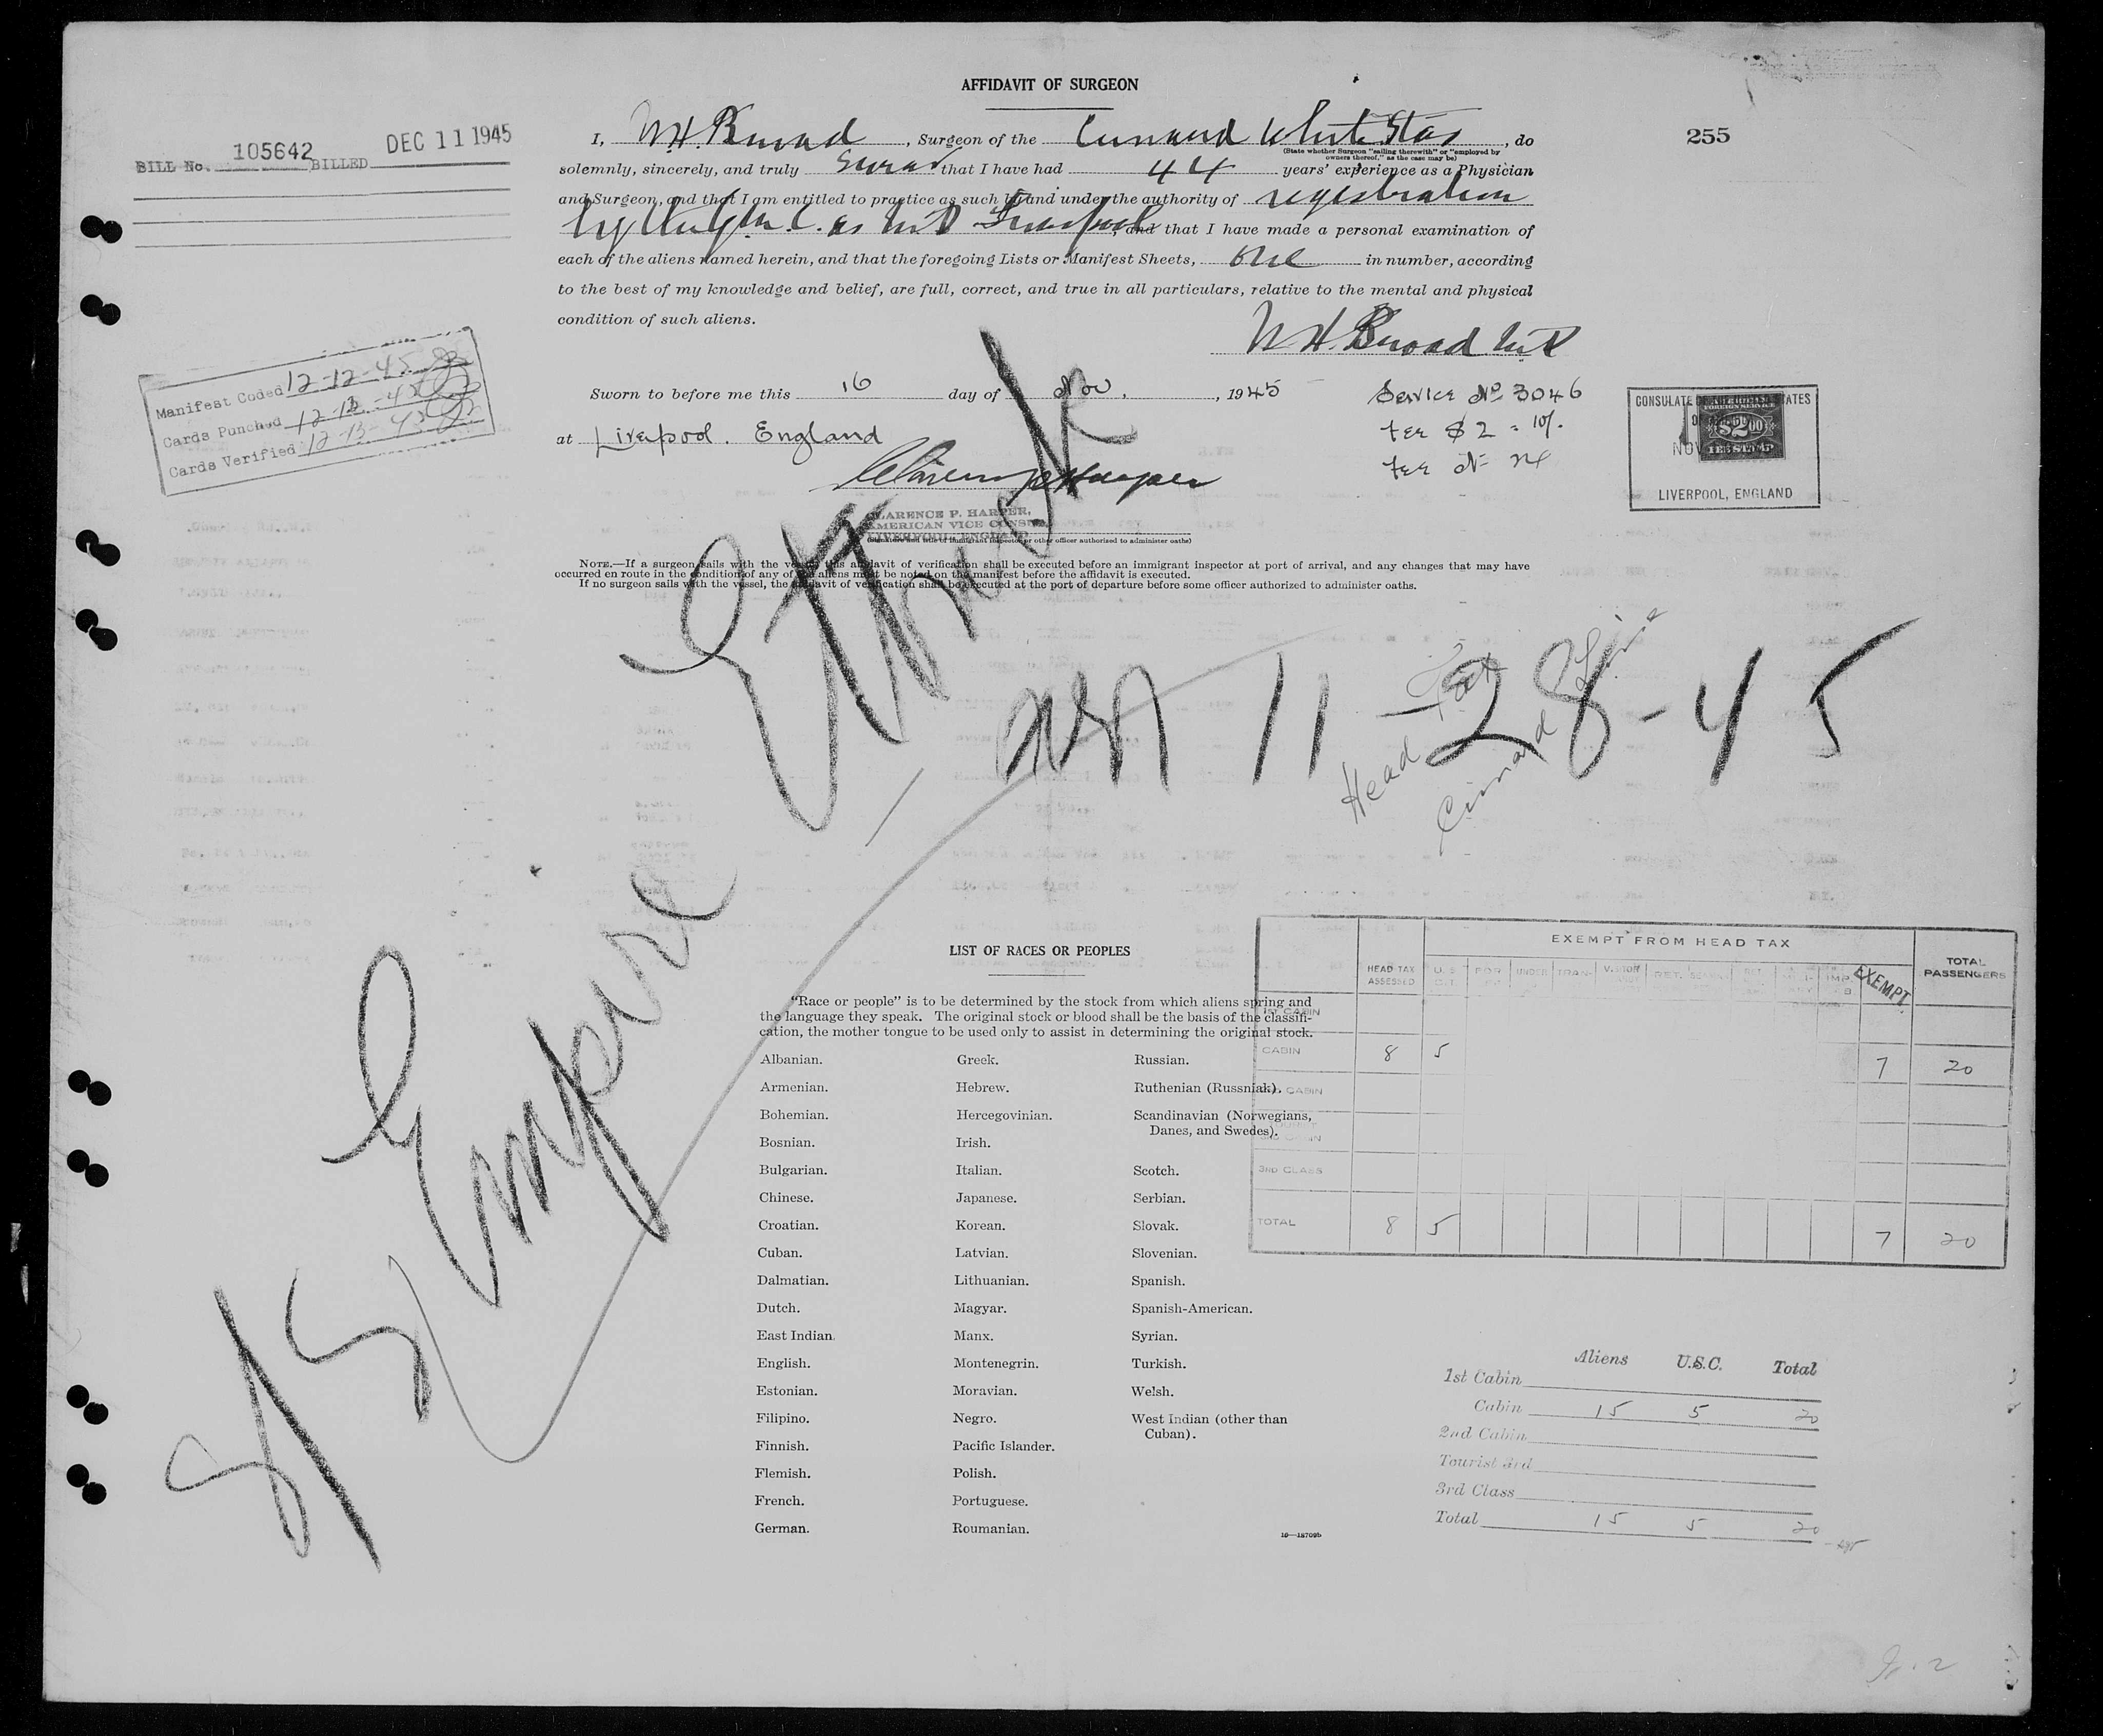 AFFIDAVIT OF SURGEON
255
BILL No. 105642 BILLED DEC 11 1945
I, W.H. Broad, Surgeon of the Cunard White Star, do
(State whether Surgeon "sailing therewith" or "employed by
owners thereof," as the case may be)
solemnly, sincerely, and truly swear that I have had 44 years' experience as a Physician
and Surgeon, and that I am entitled to practice as such by and under the authority of registration
by the G.M.C. as M.D. Liverpool, and that I have made a personal examination of
each of the aliens named herein, and that the foregoing Lists or Manifest Sheets, one in number, according
to the best of my knowledge and belief, are full, correct, and true in all particulars, relative to the mental and physical
condition of such aliens.
W.H. Broad M.D.
Manifest Coded 12-12-45
Cards Punched 12-13-45
Cards Verified 12-13-45
Sworn to before me this 16 day of Nov., 1945
at Liverpool. England
Service No 3046
fee $2 = 10/.
CONSULATE
$2.00
FEE STAMP
NOV
LIVERPOOL, ENGLAND
CLARENCE P. HARPER,
AMERICAN VICE CONSUL
LIVERPOOL, ENGLAND
(Signature and title of immigrant inspector or other officer authorized to administer oaths)
NOTE.—If a surgeon sails with the vessel, this affidavit of verification shall be executed before an immigrant inspector at port of arrival, and any changes that may have
occurred en route in the condition of any of the aliens must be noted on the manifest before the affidavit is executed.
If no surgeon sails with the vessel, the affidavit of verification shall be executed at the port of departure before some officer authorized to administer oaths.
11-28-45
Head Tax
Cunard Line
SS Empire
LIST OF RACES OR PEOPLES
"Race or people" is to be determined by the stock from which aliens spring and
the language they speak. The original stock or blood shall be the basis of the classifi-
cation, the mother tongue to be used only to assist in determining the original stock.
Albanian. Greek. Russian.
Armenian. Hebrew. Ruthenian (Russniak).
Bohemian. Hercegovinian. Scandinavian (Norwegians,
Danes, and Swedes).
Bosnian. Irish.
Bulgarian. Italian. Scotch.
Chinese. Japanese. Serbian.
Croatian. Korean. Slovak.
Cuban. Latvian. Slovenian.
Dalmatian. Lithuanian. Spanish.
Dutch. Magyar. Spanish-American.
East Indian. Manx. Syrian.
English. Montenegrin. Turkish.
Estonian. Moravian. Welsh.
Filipino. Negro. West Indian (other than
Cuban).
Finnish. Pacific Islander.
Flemish. Polish.
French. Portuguese.
German. Roumanian.
16—18709b
EXEMPT FROM HEAD TAX
HEAD TAX ASSESSED EXEMPT TOTAL PASSENGERS
1ST CABIN
CABIN 8 5 7 20
3RD CLASS
TOTAL 8 5 7 20
Aliens U.S.C. Total
1st Cabin
Cabin 15 5 20
2nd Cabin
Tourist 3rd
3rd Class
Total 15 5 20